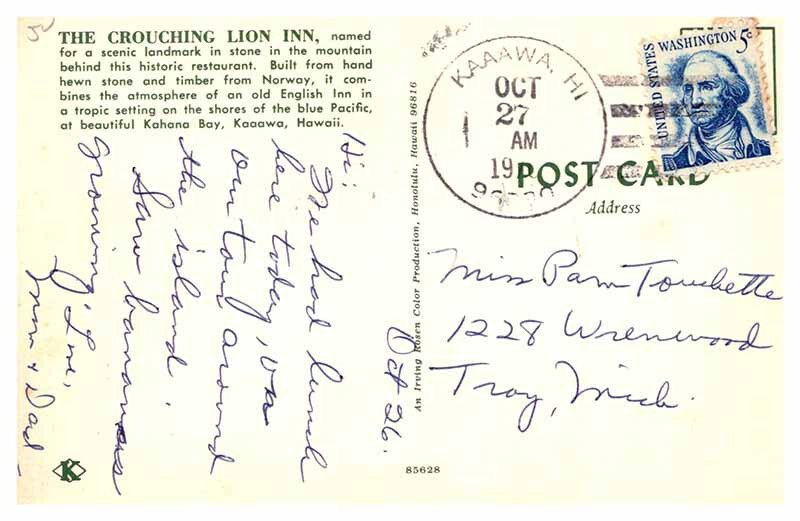 THE CROUCHING LION INN, named
for a scenic landmark in stone in the mountain
behind this historic restaurant. Built from hand
hewn stone and timber from Norway, it com-
bines the atmosphere of an old English Inn in
a tropic setting on the shores of the blue Pacific,
at beautiful Kahana Bay, Kaaawa, Hawaii.
Oct 26.
Hi!
We had lunch
here today, on
our tour around
the island.
Saw bananas
growing. Love,
Mom & Dad
K
An Irving Rosen Color Production, Honolulu, Hawaii 96816
85628
KAAAWA, HI
OCT
27
AM
19
UNITED STATES
WASHINGTON 5¢
POST CARD
Address
Miss Pam Touchette
1228 Wrenwood
Troy, Mich.